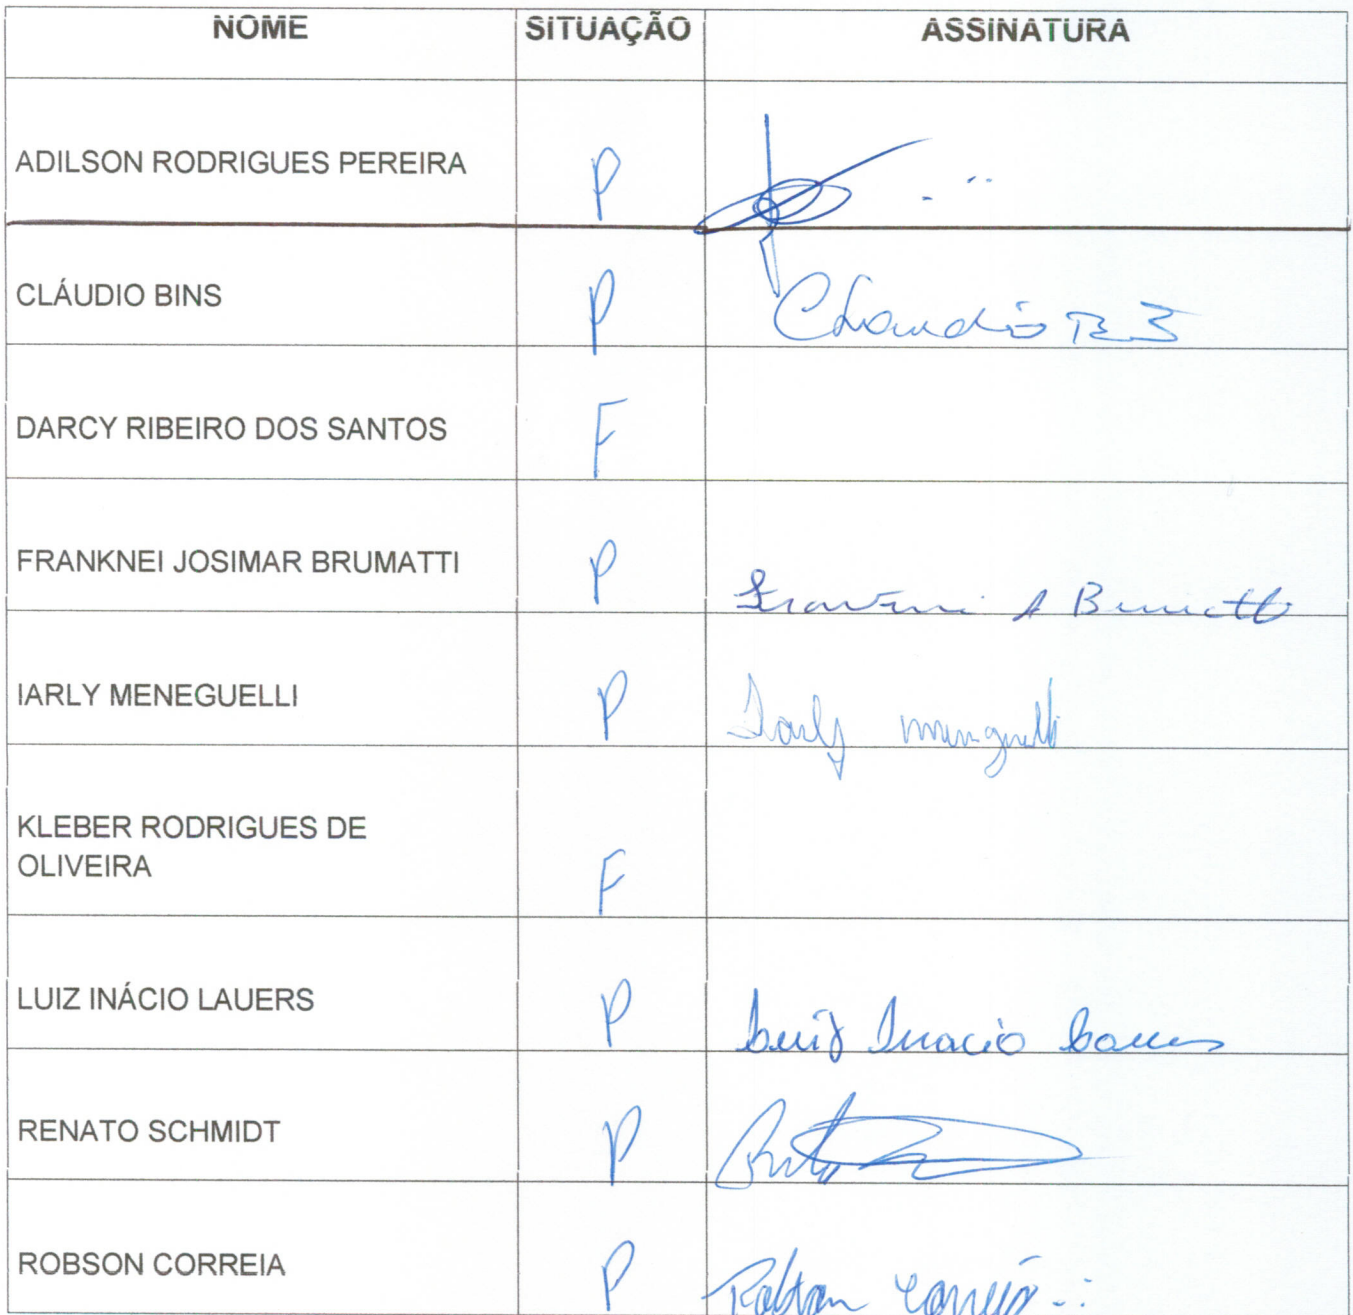 NOME SITUAÇÃO ASSINATURA
ADILSON RODRIGUES PEREIRA P
CLÁUDIO BINS P Claudio
DARCY RIBEIRO DOS SANTOS F
FRANKNEI JOSIMAR BRUMATTI P
IARLY MENEGUELLI P Iarly
KLEBER RODRIGUES DE
OLIVEIRA F
LUIZ INÁCIO LAUERS P Luiz Inacio Lauers
RENATO SCHMIDT P
ROBSON CORREIA P Robson Correia